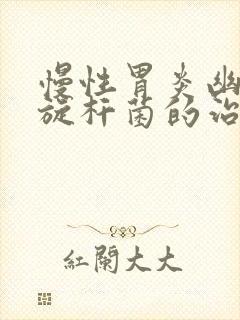 慢性胃炎幽
旋杆菌的治
紅蘭大大